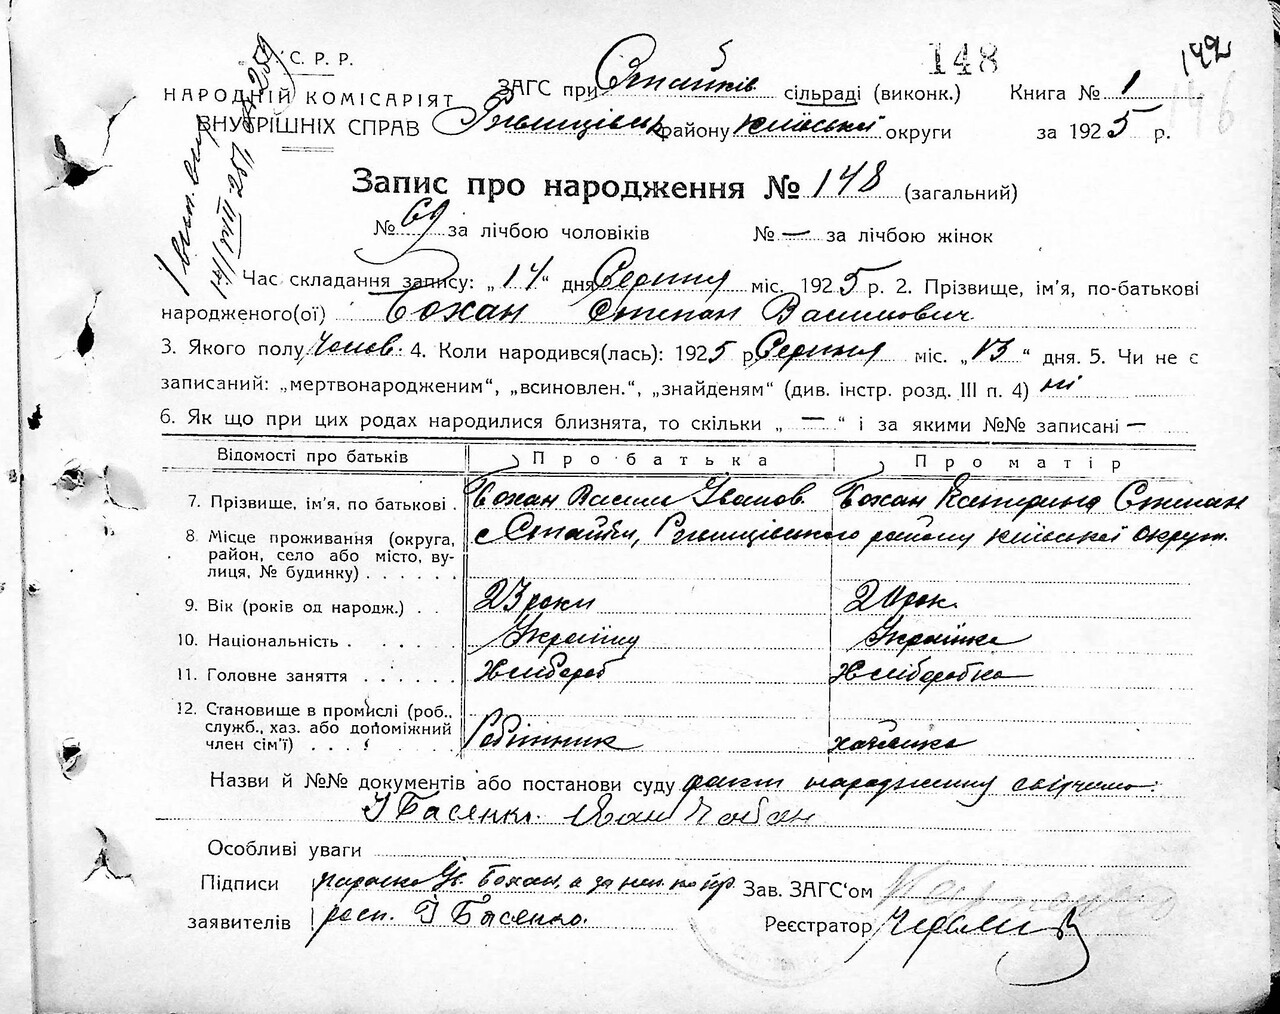 С. Р. Р.
НАРОДНІЙ КОМІСАРІЯТ
ВНУТРІШНІХ СПРАВ
148
142
146
ЗАГС при Стайків сільраді (виконк.) Книга № 1
Ржищівськ району Київської округи за 1925 р.
Запис про народження № 148 (загальний)
№ 69 за лічбою чоловіків № — за лічбою жінок
Час складання запису: „14“ дня Серпня міс. 1925 р. 2. Прізвище, ім'я, по-батькові
народженого(ої) Бохан Степан Васильович
3. Якого полу Чолов. 4. Коли народився(лась): 1925 р Серпня міс. „13“ дня. 5. Чи не є
записаний: „мертвонародженим“, „всиновлен.“, „знайденям“ (див. інстр. розд. III п. 4) ні
6. Як що при цих родах народилися близнята, то скільки „ — “ і за якими №№ записані —
Відомості про батьків Про батька Про матір
7. Прізвище, ім'я, по батькові . Бохан Васил Іванов Бохан Катерина Степан
8. Місце проживання (округа, с Стайки, Ржищівського району Київської округи.
район, село або місто, ву-
лиця, № будинку) . . . . . .
9. Вік (років од народж.) . . 23 роки 20 рок.
10. Національність . . . . . Українц Українка
11. Головне заняття . . . . . . Хлібороб Хліборобка
12. Становище в промислі (роб.,
служб., хаз. або допоміжний
член сім'ї) . . . . Робітник хазяйка
Назви й №№ документів або постанови суду факт народження свідчать:
І Басенко. Іван Чабан
Особливі уваги
Підписи Бохан, а за неп. по пр. Зав. ЗАГС'ом
заявителів росп. І Басенко. Реєстратор